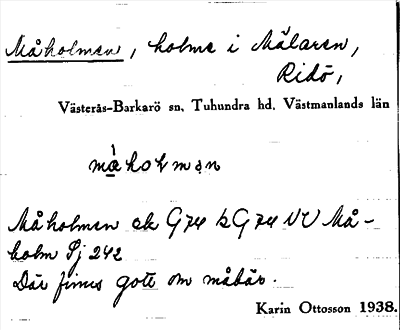 Måholmen, holme i Mälaren,
Ridö,
Västerås-Barkarö sn, Tuhundra hd, Västmanlands län
måholmən
Måholmen ek G74 G74 NV Må-
holm Sj 242
Där finns gott om måbär.
Karin Ottosson 1938.